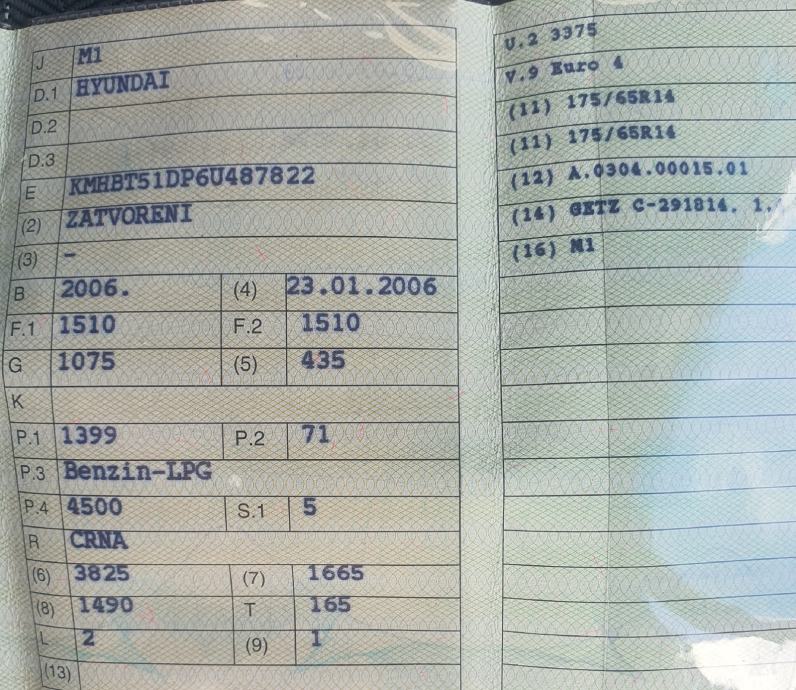 J M1
D.1 HYUNDAI
D.2
D.3
E KMHBT51DP6U487822
(2) ZATVORENI
(3) –
B 2006. (4) 23.01.2006
F.1 1510 F.2 1510
G 1075 (5) 435
K
P.1 1399 P.2 71
P.3 Benzin-LPG
P.4 4500 S.1 5
R CRNA
(6) 3825 (7) 1665
(8) 1490 T 165
L 2 (9) 1
(13)
U.2 3375
V.9 Euro 4
(11) 175/65R14
(11) 175/65R14
(12) A.0304.00015.01
(14) GETZ C-291814. 1.
(16) M1